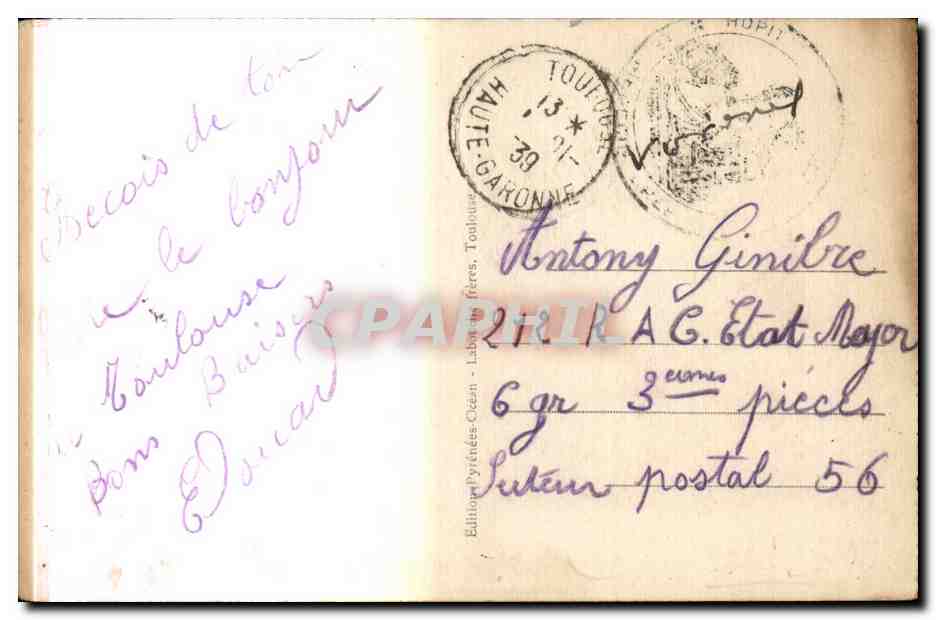 Recois de ton
le bonjour
de Toulouse
Bons Baisers
Edouard
HOPIT
TOULOUSE
13 *
21-
39
HAUTE-GARONNE
Editions Pyrénées-Océan - Labouche frères, Toulouse
CPAPHIL
Antony Ginibre
212 R A C. Etat Major
6 gr 3eumes pièces
Secteur postal 56